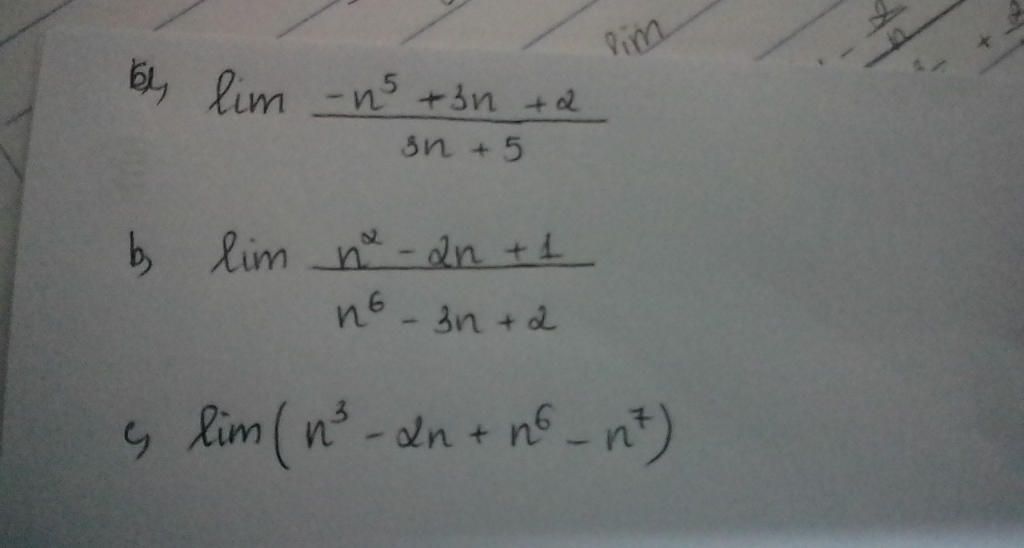 lim
a, lim (-n⁵ + 3n + 2)/(3n + 5)
b, lim (n² - 2n + 1)/(n⁶ - 3n + 2)
c, lim (n³ - 2n + n⁶ - n⁷)